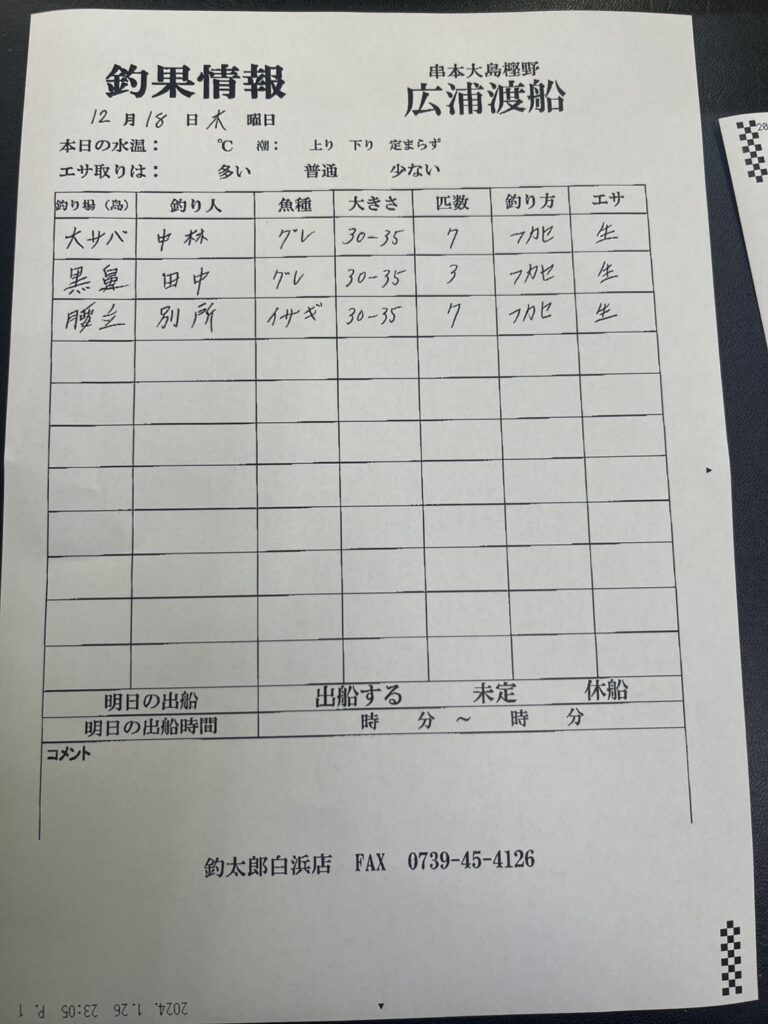 釣果情報
串本大島樫野
広浦渡船
12月18日木曜日
本日の水温： ℃ 潮： 上り 下り 定まらず
エサ取りは： 多い 普通 少ない
釣り場（島） 釣り人 魚種 大きさ 匹数 釣り方 エサ
大サバ 中林 グレ 30-35 7 フカセ 生
黒鼻 田中 グレ 30-35 3 フカセ 生
腰立 別所 イサギ 30-35 7 フカセ 生
明日の出船 出船する 未定 休船
明日の出船時間 時 分 ～ 時 分
コメント
釣太郎白浜店 FAX 0739-45-4126
2024. 1.26 23:05 P. 1
20